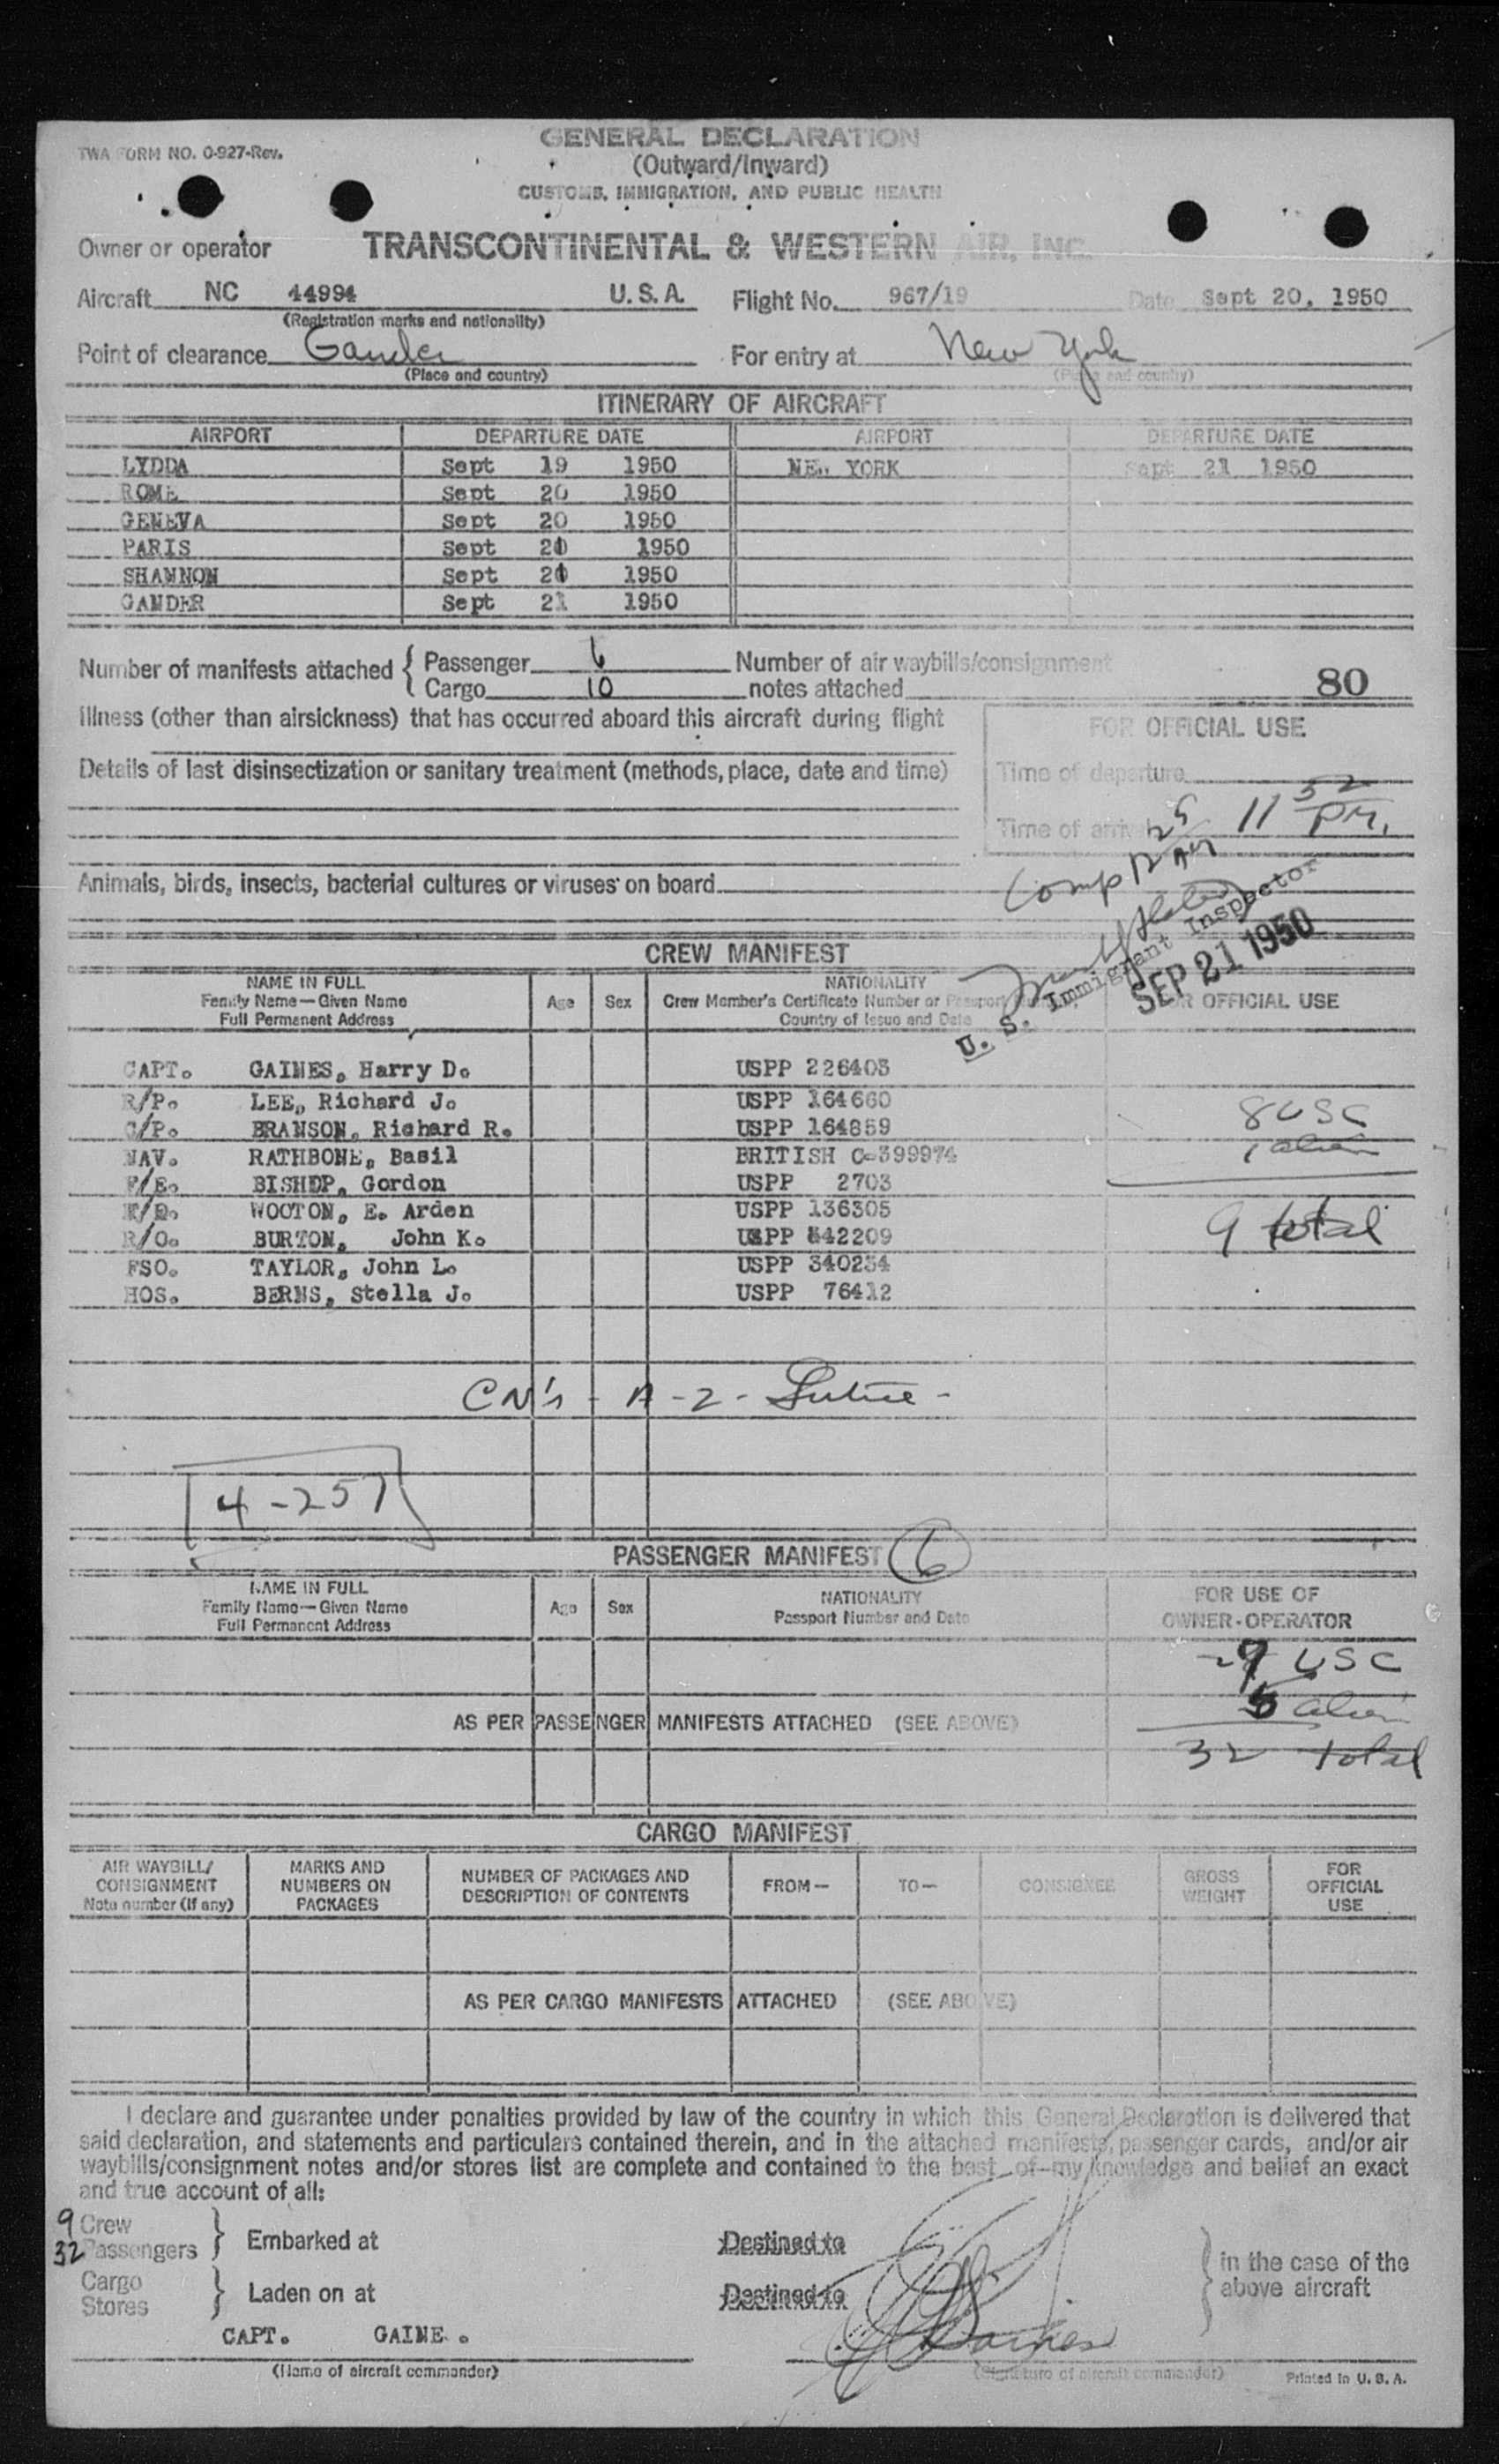 GENERAL DECLARATION
TWA FORM NO. O-927-Rev.
(Outward/Inward)
CUSTOMS, IMMIGRATION, AND PUBLIC HEALTH
Owner or operator TRANSCONTINENTAL & WESTERN AIR, INC.
Aircraft NC 44994 U.S.A. Flight No. 967/19 Date Sept 20, 1950
(Registration marks and nationality)
Point of clearance Gander For entry at New York
(Place and country) (Place and country)
ITINERARY OF AIRCRAFT
AIRPORT DEPARTURE DATE AIRPORT DEPARTURE DATE
LYDDA Sept 19 1950 NEW YORK Sept 21 1950
ROME Sept 20 1950
GENEVA Sept 20 1950
PARIS Sept 1950
SHANNON Sept 1950
GANDER Sept 21 1950
Number of manifests attached { Passenger 6 Number of air waybills/consignment
Cargo 10 notes attached 80
Illness (other than airsickness) that has occurred aboard this aircraft during flight
FOR OFFICIAL USE
Details of last disinsectization or sanitary treatment (methods, place, date and time)
Time of departure
Time of arrival 11 52 PM.
Comp 12 25 AM
Animals, birds, insects, bacterial cultures or viruses on board
U. S. Immigrant Inspector
SEP 21 1950
CREW MANIFEST
NAME IN FULL
Family Name—Given Name
Full Permanent Address
Age Sex
NATIONALITY
Crew Member's Certificate Number or Passport
Country of Issue and Date
FOR OFFICIAL USE
CAPT. GAINES, Harry D. USPP 226403
R/P. LEE, Richard J. USPP 164660
C/P. BRANSON, Richard R. USPP 164859
8 USC
NAV. RATHBONE, Basil BRITISH C-399974
1 alien
F/E. BISHOP, Gordon USPP 2703
WOOTON, E. Arden USPP 136305
9 total
R/O. BURTON, John K. USPP 342209
FSO. TAYLOR, John L. USPP 340234
HOS. BERNS, Stella J. USPP 76412
CN's - A-2-
4-257
PASSENGER MANIFEST 6
NAME IN FULL
Family Name—Given Name
Full Permanent Address
Age Sex
NATIONALITY
Passport Number and Date
FOR USE OF
OWNER-OPERATOR
27 USC
5 alien
AS PER PASSENGER MANIFESTS ATTACHED (SEE ABOVE)
32 total
CARGO MANIFEST
AIR WAYBILL/
CONSIGNMENT
Note number (if any)
MARKS AND
NUMBERS ON
PACKAGES
NUMBER OF PACKAGES AND
DESCRIPTION OF CONTENTS
FROM— TO— CONSIGNEE
GROSS
WEIGHT
FOR
OFFICIAL
USE
AS PER CARGO MANIFESTS ATTACHED (SEE ABOVE)
I declare and guarantee under penalties provided by law of the country in which this General Declaration is delivered that
said declaration, and statements and particulars contained therein, and in the attached manifests, passenger cards, and/or air
waybills/consignment notes and/or stores list are complete and contained to the best of my knowledge and belief an exact
and true account of all:
9 Crew
32 Passengers } Embarked at Destined to
} in the case of the
above aircraft
Cargo
Stores } Laden on at Destined to
CAPT. GAINE . Gaines
(Name of aircraft commander) (Signature of aircraft commander) Printed in U. S. A.